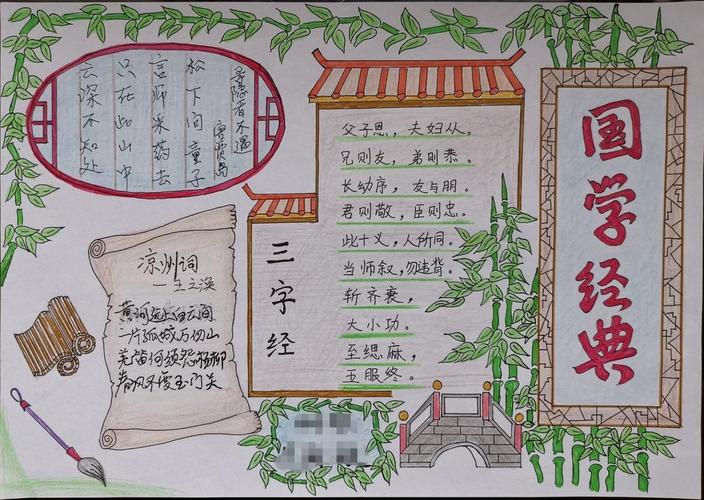 国学经典
寻隐者不遇
唐 贾岛
松下问童子
言师采药去
只在此山中
云深不知处
三字经
父子恩，夫妇从。
兄则友，弟则恭。
长幼序，友与朋。
君则敬，臣则忠。
此十义，人所同。
当师叙，勿违背。
斩齐衰，
大小功。
至缌麻，
五服终。
凉州词
一王之涣
黄河远上白云间
一片孤城万仞山
羌笛何须怨杨柳
春风不度玉门关